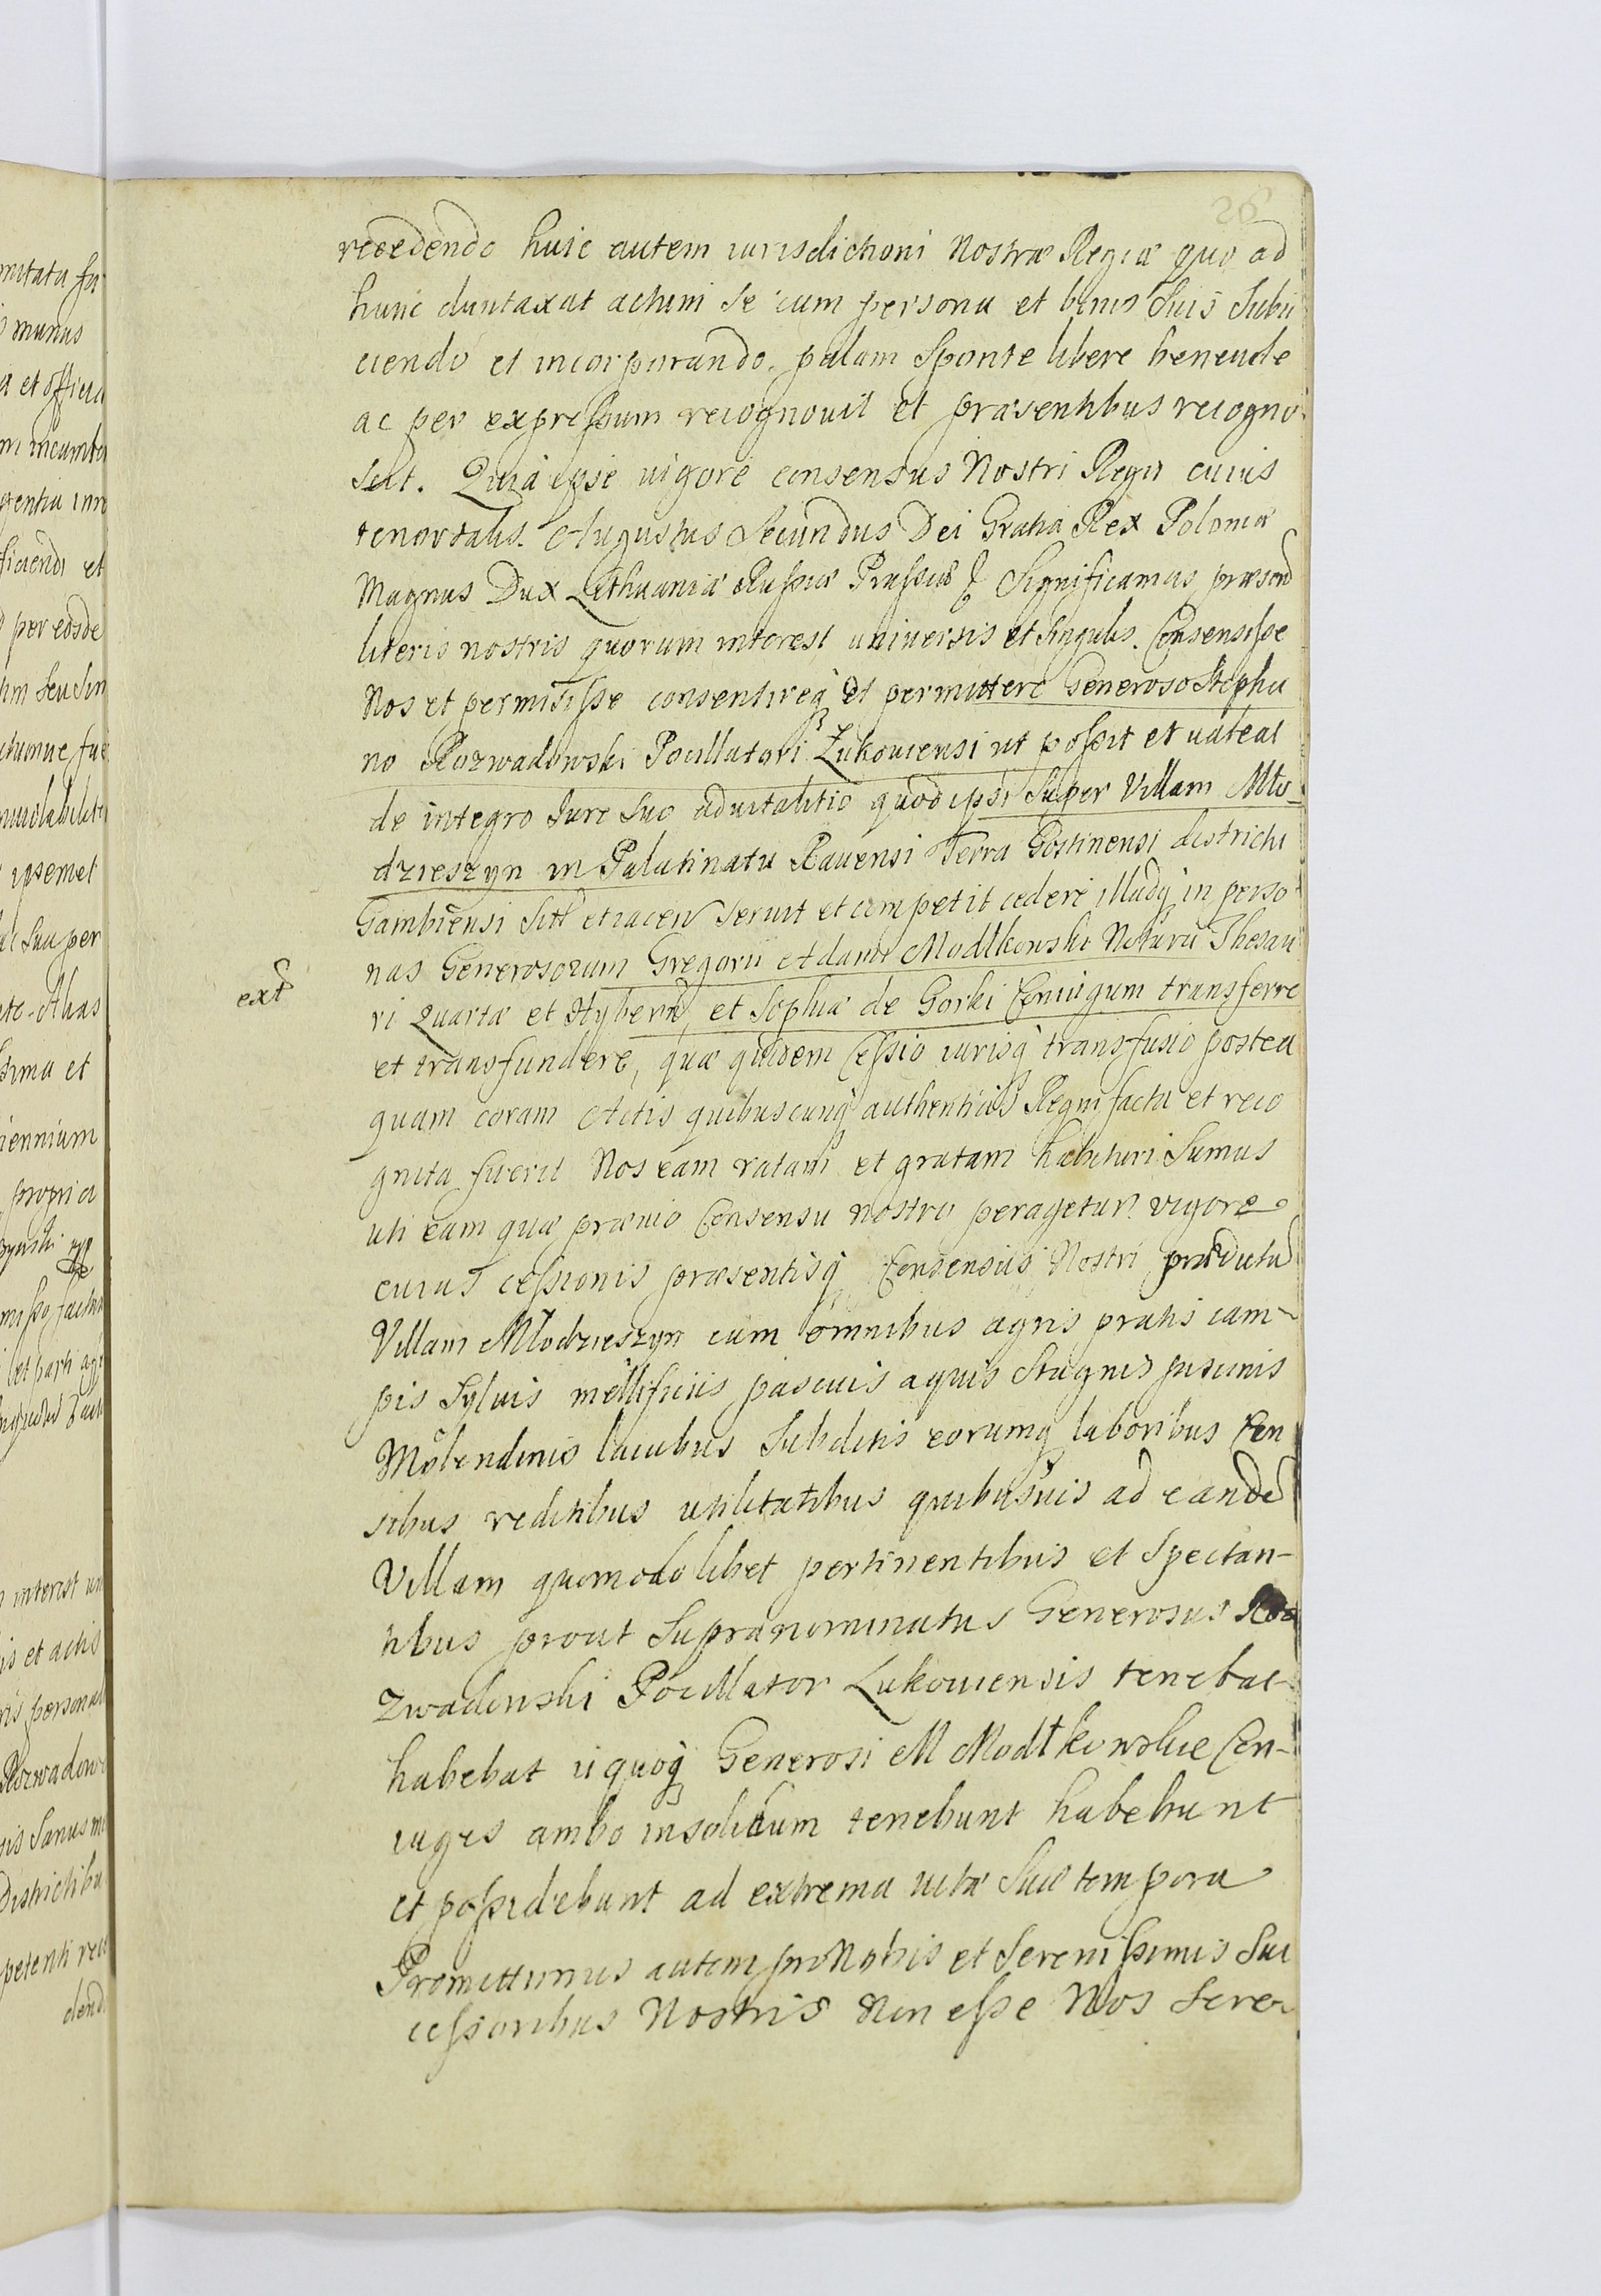 26
recedendo huic autem iurisdictioni Nostræ Regiæ quo ad
hunc duntaxat actum se cum persona et bonis suis subii
ciendo et incorporando palam sponte libere beneude
ac per expressum recognouit et præsentibus recogno
scit. Quia ipse uigore consensus Nostri Regii cuius
tenor talis. Augustus Secundus Dei Gratia Rex Poloniæ
Magnus Dux Lithuaniæ Russiæ Prussiæ & Significamus præsent
literis nostris quorum interest uniuersis et singulis. Consensisse
Nos et permisisse consentireq et permittere Generoso Stepha
no Rozwadowski Pocillatori Lukouiensi ut possit et ualeat
de integro Iure Suo aduitalitio quod ipsi Super Villam Mło
dzieszyn in Palatinatu Rauensi Terra Gostinensi districtu
Gambinensi Sit et iacen seruit et competit cedere illudq in perso
nas Generosorum Gregorii Adami Modlkowski Notarii Thesau
ext
ri Quartæ et Hybern, et Sophiæ de Gorki Coniugum transferre
et transfundere, quæ quidem Cessio iurisq transfusio postea
quam coram Actis quibuscunq authenticis Regni facta et reco
gnita fuerit Nos eam ratam et gratam habituri Sumus
uti eam quæ præuio Consensu nostro peragetur. vigore
cuius cessionis præsentisq Consensus Nostri prædicta
Villam Młodzieszyn cum omnibus agris pratis cam-
pis Syluis mellificiis pascuis aquis Stagnis piscinis
Molendinis lacubus Subditis eorumq laboribus Cen
sibus reditibus utilitatibus quibusuis ad eande
Villam quomodolibet pertinentibus et Spectan-
tibus prout Supranominatus Generosus Ro
zwadowski Pocillator Lukouiensis tenebat
habebat ii quoq Generosi M Modtkowskie Con-
iuges ambo insolidum tenebunt habebunt
et possidebunt ad extrema uitæ Suæ tempora
Promittimus autem pro Nobis et Serenissimis Suc
cessoribus Nostris Non esse Nos Sere